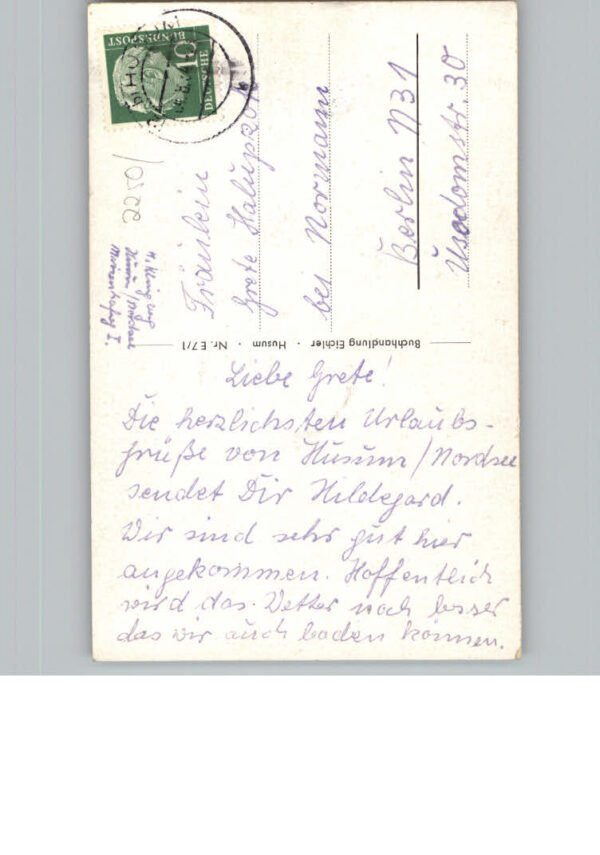 Liebe Grete!
Die herzlichsten Urlaubs-
grüße von Husum/Nordsee
sendet Dir Hildegard.
Wir sind sehr gut hier
angekommen. Hoffentlich
wird das Wetter noch besser
das wir auch baden können.
Fräulein
Grete
bei Normann
Berlin N31
Usedomstr. 30
Buchhandlung Eichler · Husum · Nr. E 7/1
2250/
Husum/Nordsee
DEUTSCHE
BUNDESPOST
10